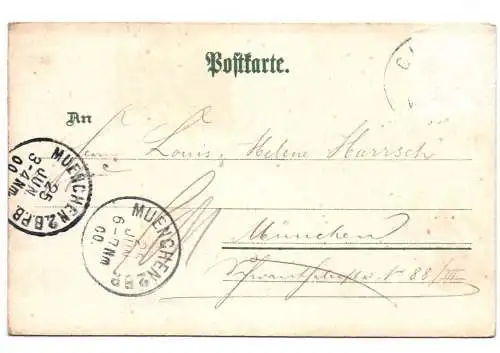 Postkarte.
An
Louis, Helene Harrsch
München
No 88/III
MUENCHEN 2.B.P.B.
25
JUN
3-4 Nm
00
MUENCHEN
JUN
6-7 Nm
00.